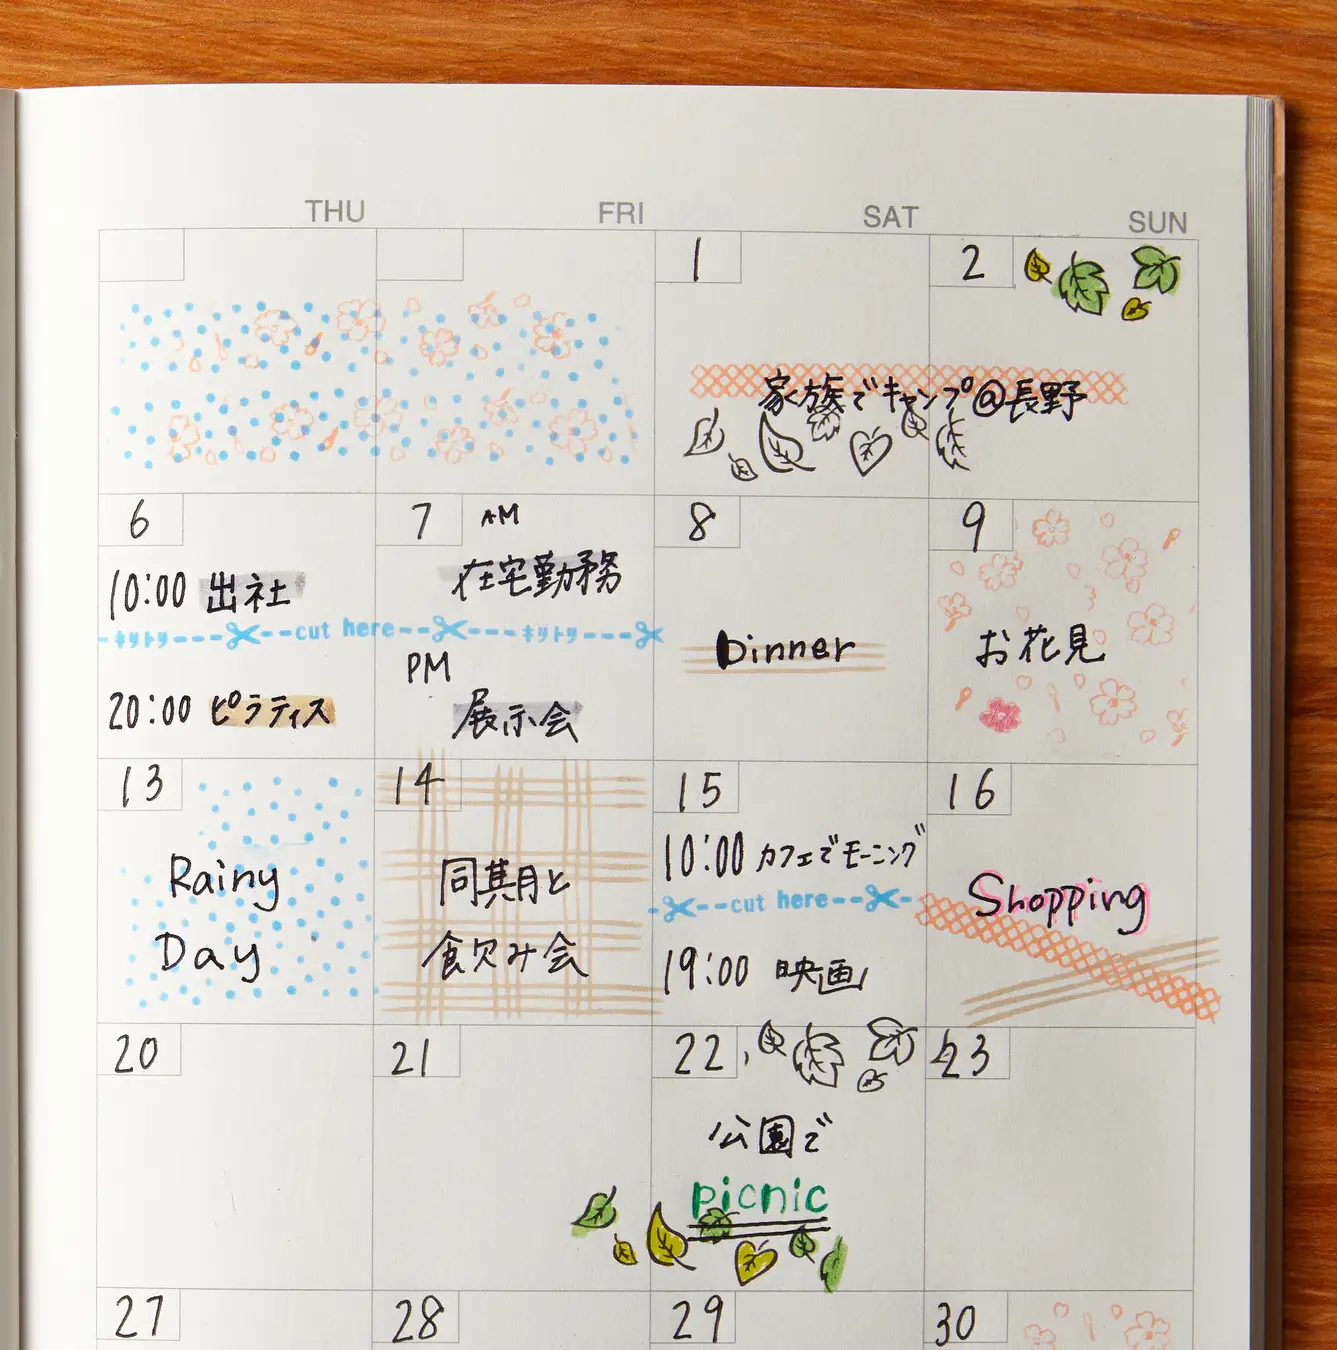 THU FRI SAT SUN
1 2
家族でキャンプ@長野
6 7 AM 8 9
10:00 出社
在宅勤務
キリトリ cut here キリトリ
Dinner
お花見
PM
20:00 ピラティス
展示会
13 14 15 16
Rainy
Day
同期と
食飲み会
10:00 カフェでモーニング
cut here
19:00 映画
Shopping
20 21 22 23
公園で
picnic
27 28 29 30